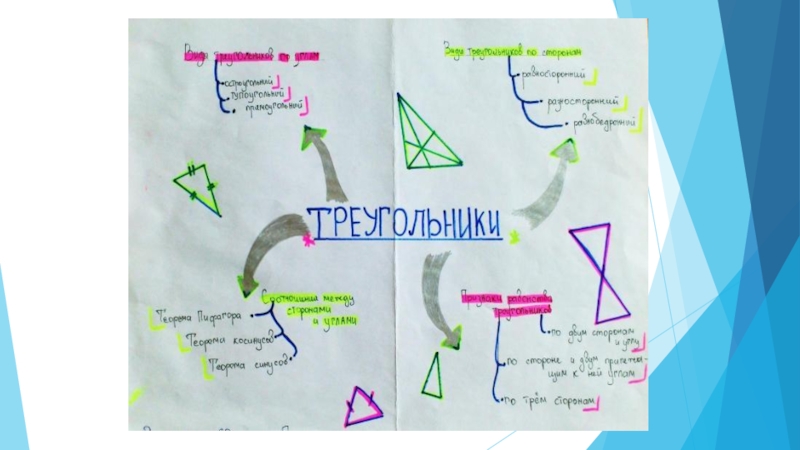 Виды треугольников по углам
остроугольный
тупоугольный
прямоугольный
Виды треугольников по сторонам
равносторонний
разносторонний
равнобедренный
ТРЕУГОЛЬНИКИ
Соотношения между
сторонами
и углами
Теорема Пифагора
Теорема косинусов
Теорема синусов
Признаки равенства
треугольников
по двум сторонам
и углу
по стороне и двум прилежа-
щим к ней углам
по трём сторонам